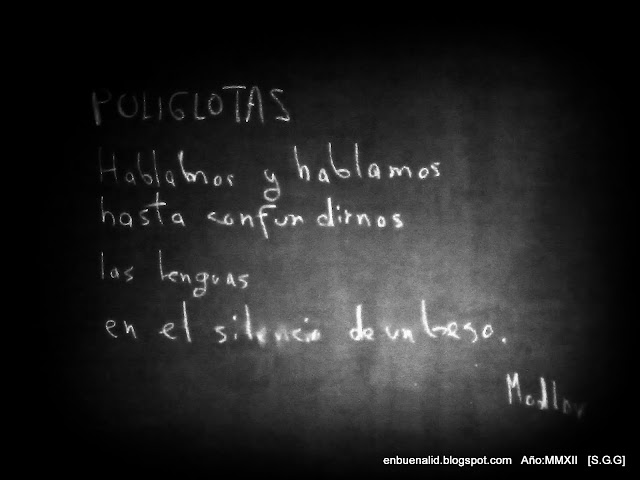 POLIGLOTAS
Hablamos y hablamos
hasta confundirnos
las lenguas
en el silencio de un beso.
enbuenalid.blogspot.com Año:MMXII [S.G.G]